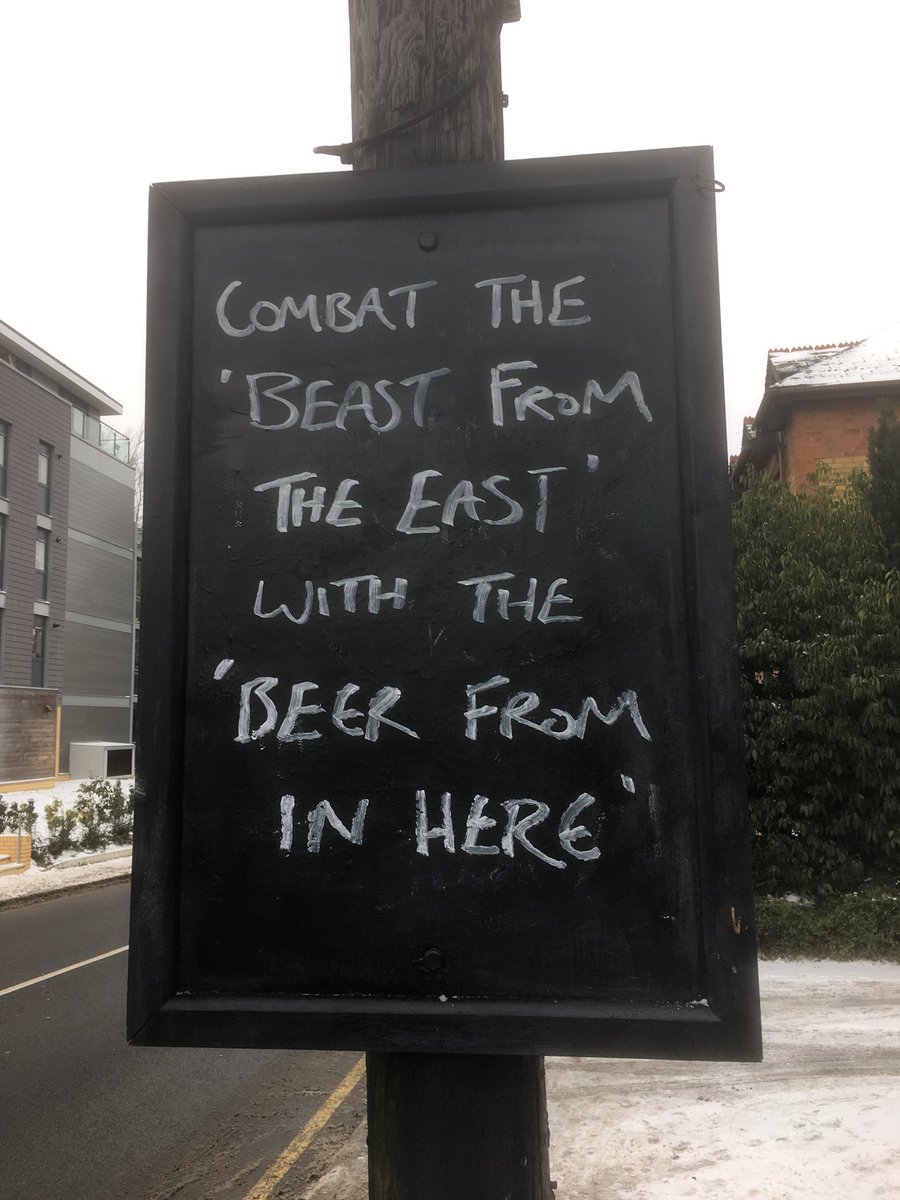 COMBAT THE
'BEAST FROM
THE EAST'
WITH THE
'BEER FROM
IN HERE'